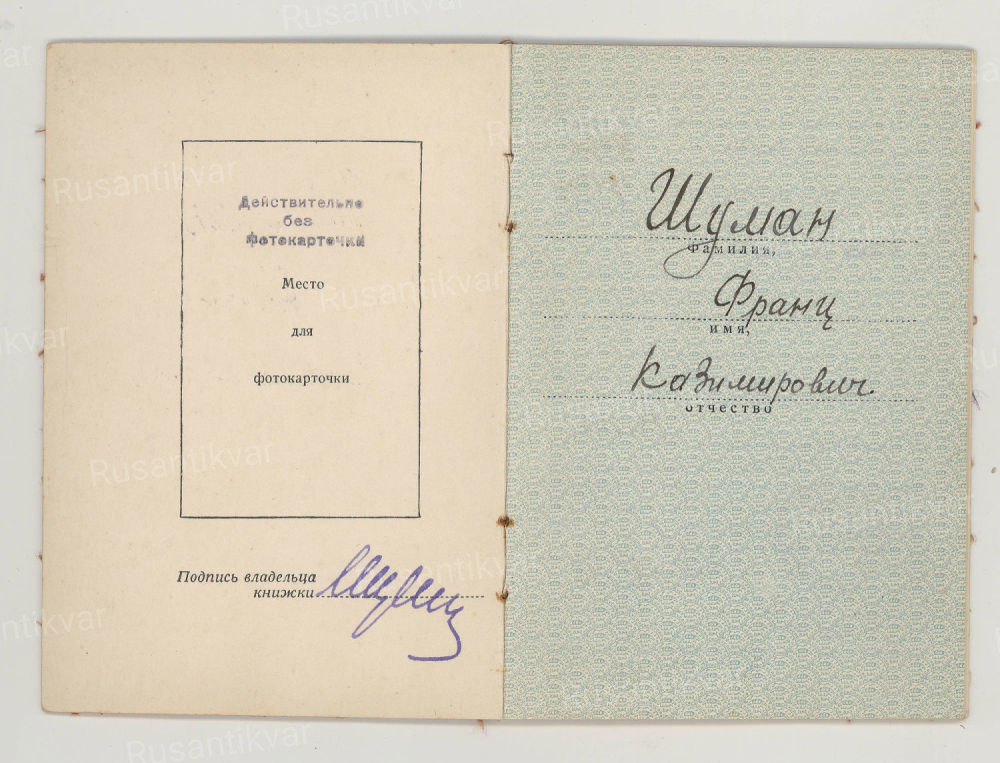 Действительно
без
фотокарточки
Место
для
фотокарточки
Подпись владельца
книжки
Шуман
Фамилия,
Франц
имя,
Казимирович.
отчество
Rusantikvar